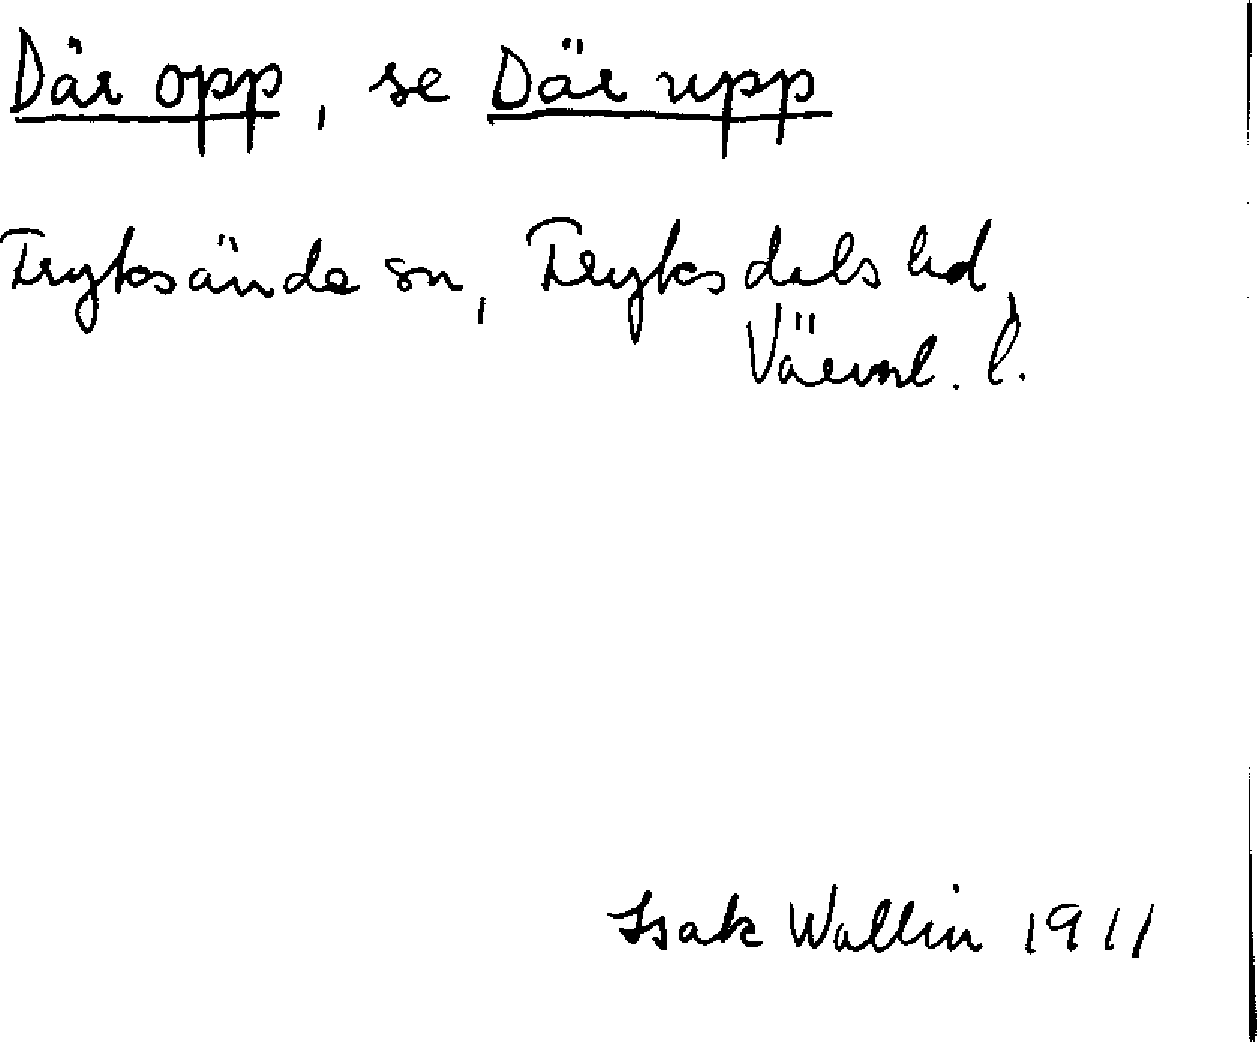 Där opp, se Där upp
Fryksände sn, Fryksdals hd,
Värml. l.
Isak Wallin 1911